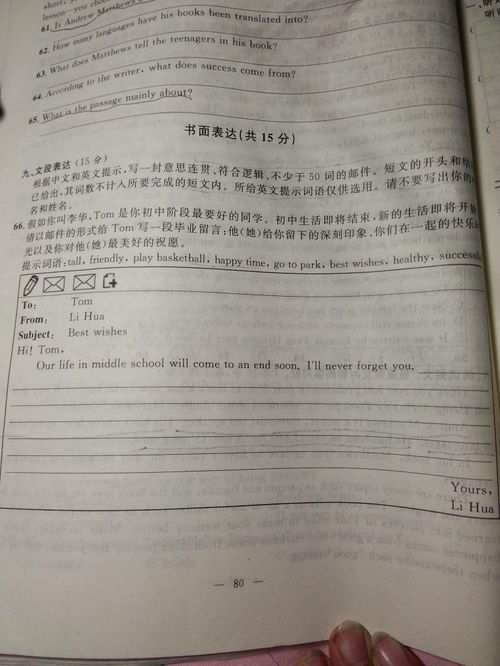 short,
lesson—you
61. Is Andrew Matthews
62. How many languages have his books been translated into?
63. What does Matthews tell the teenagers in his book?
64. According to the writer, what does success come from?
65. What is the passage mainly about?
书面表达(共 15 分)
九、文段表达 (15 分)
根据中文和英文提示,写一封意思连贯、符合逻辑、不少于 50 词的邮件。短文的开头和结
已给出,其词数不计入所要完成的短文内。所给英文提示词语仅供选用。请不要写出你的
名和姓名。
66. 假如你叫李华,Tom 是你初中阶段最要好的同学。初中生活即将结束,新的生活即将开
请以邮件的形式给 Tom 写一段毕业留言:他(她)给你留下的深刻印象、你们在一起的快乐
光以及你对他(她)最美好的祝愿。
提示词语:tall, friendly, play basketball, happy time, go to park, best wishes, healthy, successful
To: Tom
From: Li Hua
Subject: Best wishes
Hi! Tom,
Our life in middle school will come to an end soon. I'll never forget you.
Yours,
Li Hua
— 80 —